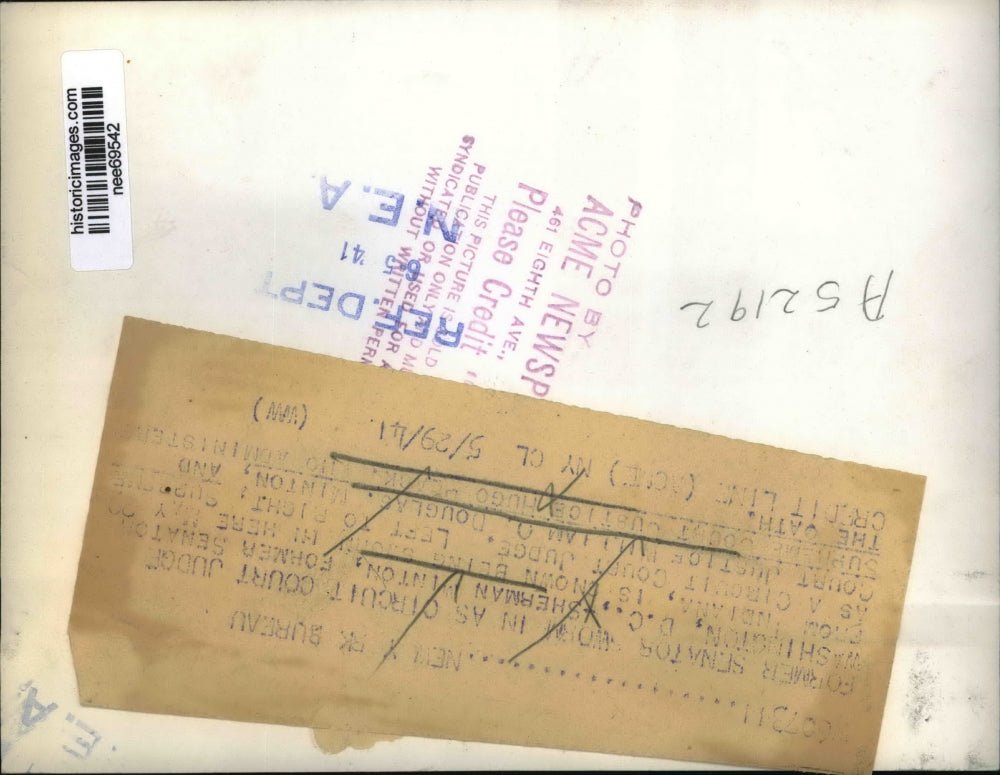 historicimages.com
nee69542
PHOTO BY
ACME NEWSP
461 EIGHTH AVE.,
Please Credit
THIS PICTURE IS SOLD
PUBLICATION ONLY AND M
SYNDICATED OR USED FOR A
WITHOUT WRITTEN PERM
N. E. A
41
REF. DEPT
A52192
NEW YORK BUREAU
FORMER SENATOR SWORN IN AS CIRCUIT COURT JUDGE
WASHINGTON, D.C. SHERMAN MINTON, FORMER SENATOR
FROM INDIANA, IS SHOWN BEING SWORN IN HERE MAY
AS A CIRCUIT COURT JUDGE. LEFT TO RIGHT: SUPREME
COURT JUSTICE WILLIAM O. DOUGLAS, MINTON, AND
SUPREME COURT JUSTICE HUGO BLACK, WHO ADMINISTER
THE OATH.
CREDIT LINE (ACME) NY CL 5/29/41 (WW)
E. A